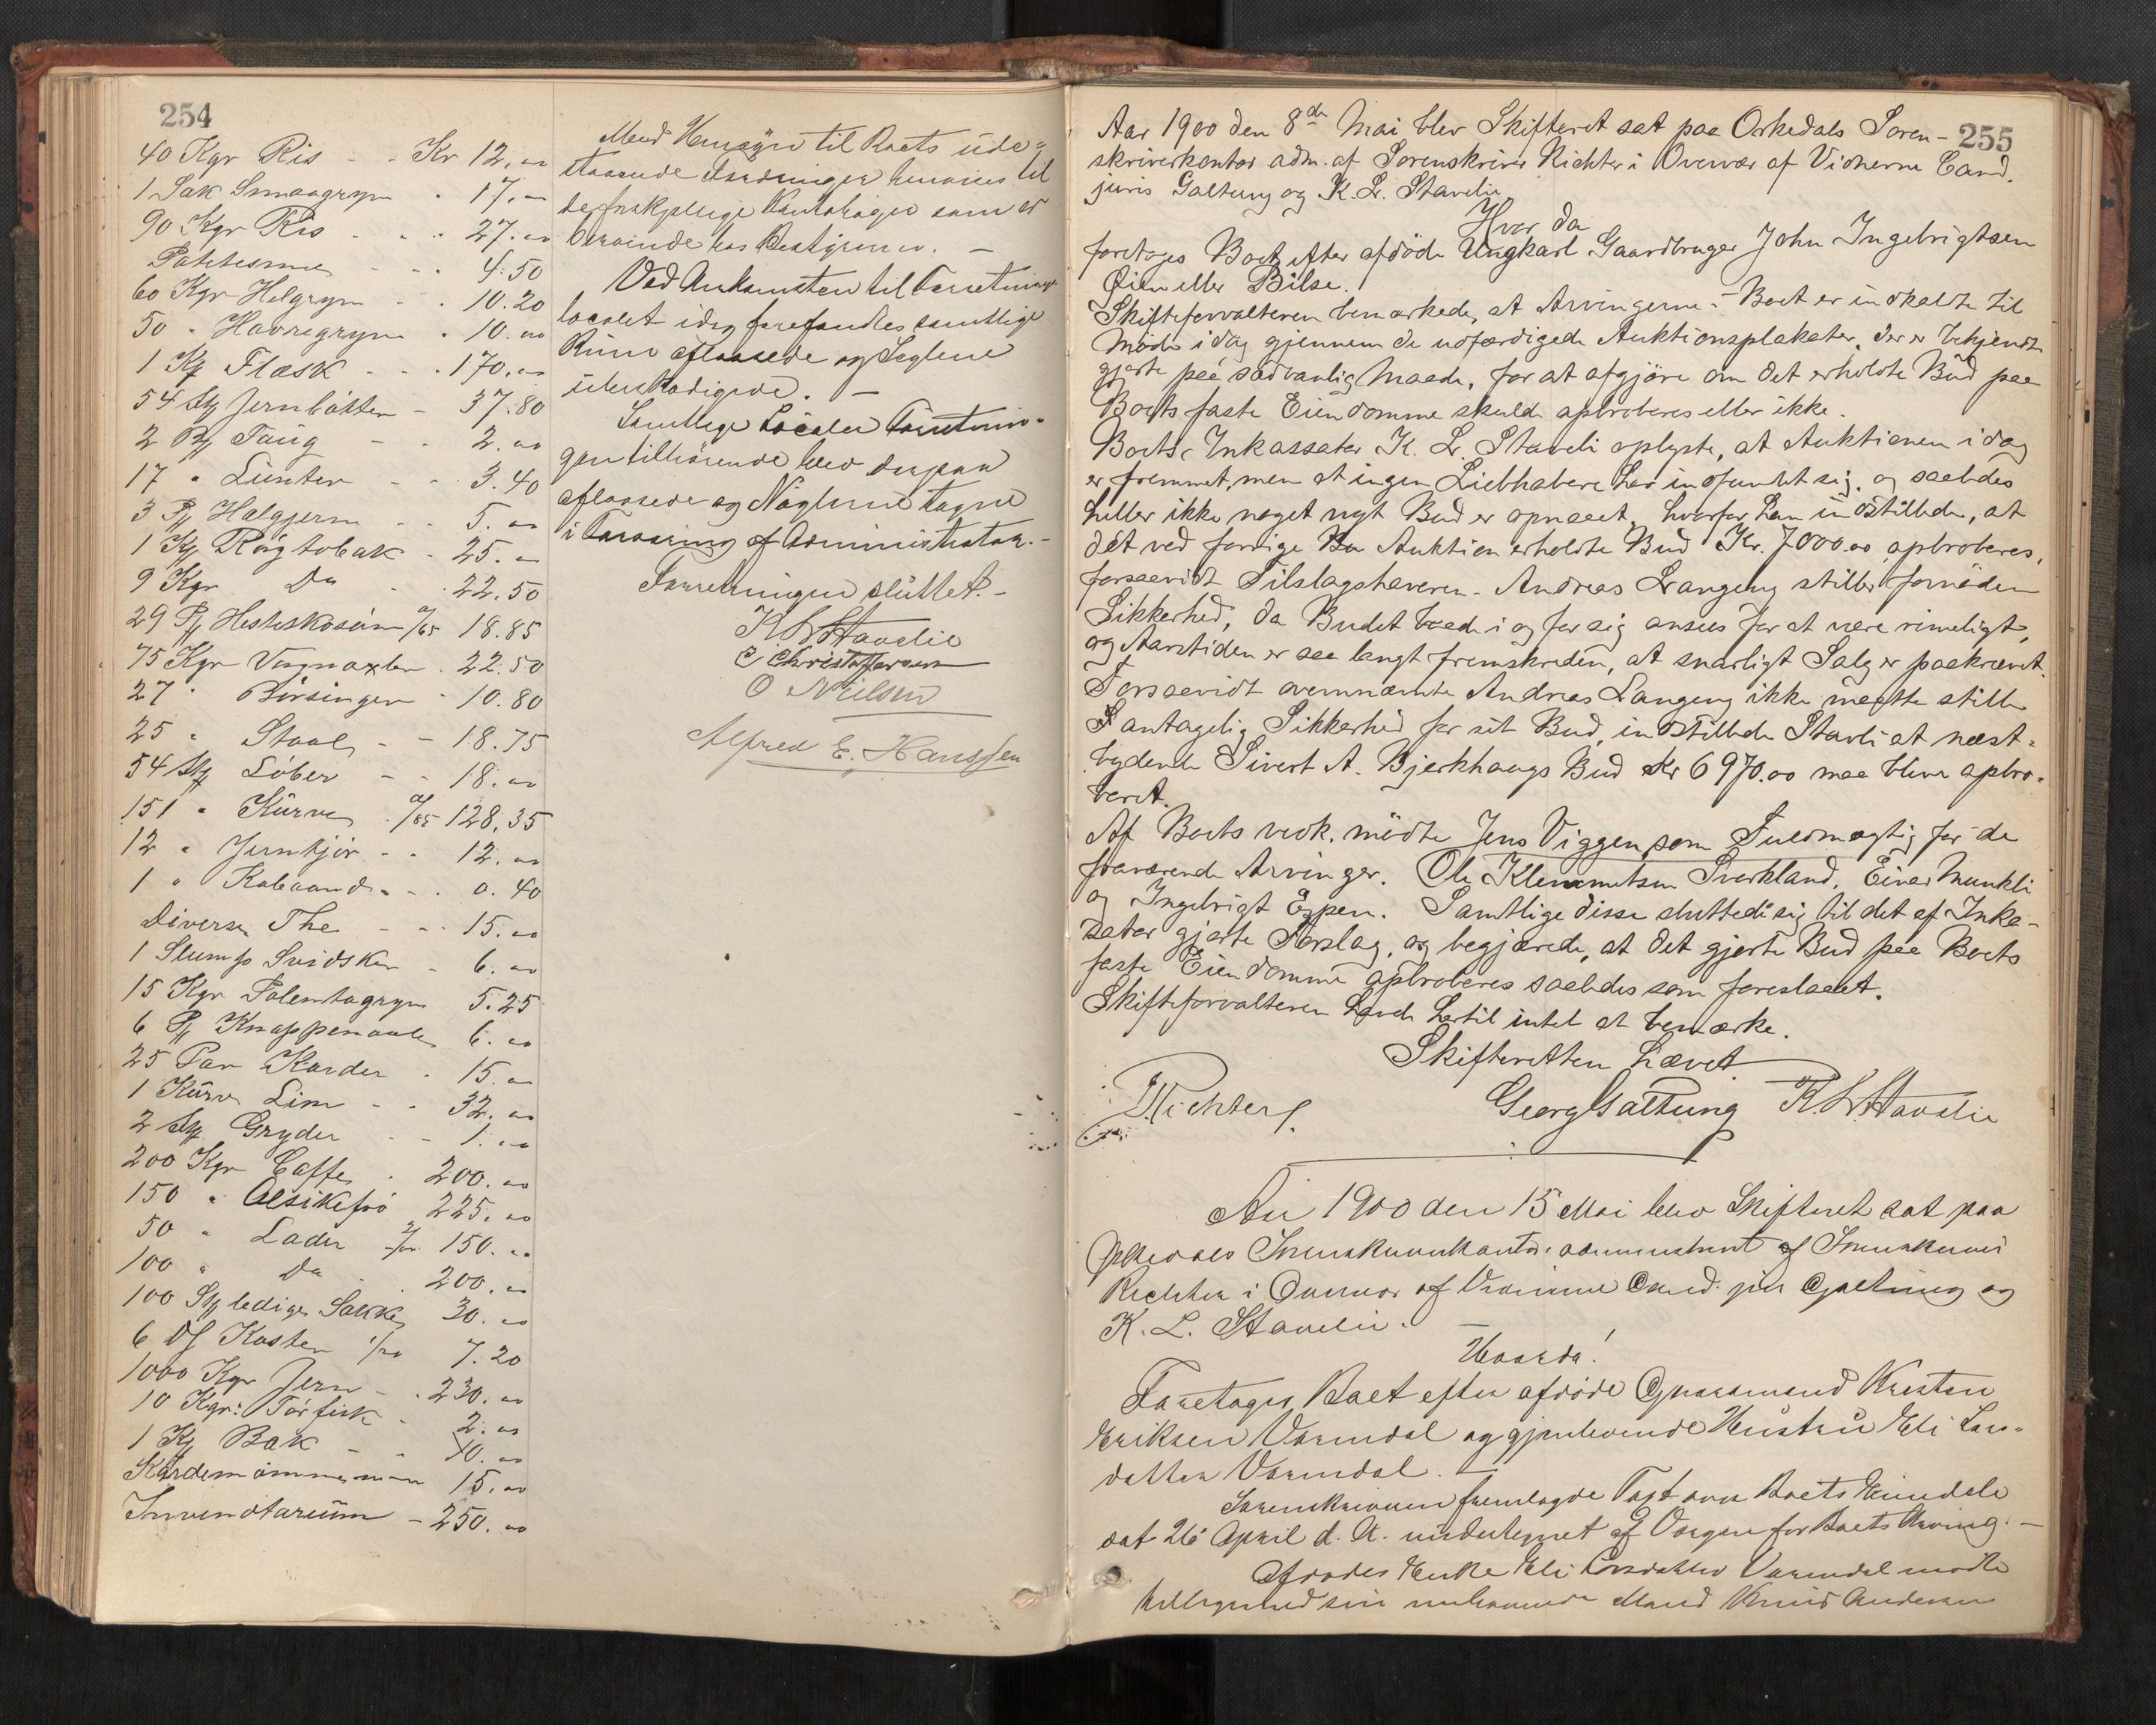 254
40 Kgr Ris - - Kr 12.00
1 Sæk Smaagryn - 17.00
90 Kgr Ris - - - 27.00
- - - 4.50
60 Kgr Helgryn - - 10.20
50 " Havregryn - 10.00
1 Kg Flæsk - - - 170.00
54 Stk Jernbötter - 37.80
2 Taug - - 2.00
17 " Lunter - - 3.40
3 Halgjern - - 5.00
1 Kg Rögtobak - 25.00
9 Kgr Do - - 22.50
29 Hesteskosöm a/65 18.85
75 Kgr Vognaxler - 22.50
27 " Bösinger - 10.80
25 " Staal - - 18.75
54 Stk Löber - - 18.00
151 " Kurve a/85 128.35
12 " Jernkjör - - 12.00
1 " - - 0.40
Diverse The - - 15.00
1 Slump Svidsker - 6.00
15 Kgr Palentagryn 5.25
6 Knappenaale 6.00
25 Par Karder - 15.00
1 Kurv Lim - - 32.00
2 Stk Gryder - - 1.00
200 Kgr Caffe - 200.00
150 " Alsikefrö 225.00
50 " Læder 150.00
100 " Do - - 200.00
100 Stk ledige Sække 30.00
6 Ds Koster 7.20
1000 Kgr Jern - - 230.00
10 Kgr: Törfisk - 2.00
1 Kg Bak - - 40.00
Kardemomme 15.00
Inventarium - 250.00
Med Hensyn til Boets ude=
staaende Fordringer henvises til
de forskjellige Contobøger som er
beroende hos Bestyreren. -
Ved Ankomsten til Forretnings
localet idag forefandtes samtlige
Rum aflaasede og Seglene
ubeskadigede. -
Samtlige Localer Forretnin=
gen tilhörende blev derpaa
aflaasede og Nøglerne tagne
i Forvaring af Administrator. -
Forretningen sluttet. -
K L Stavelie
C Christoffersen
O Nielsen
Alfred E. Hanssen
255
Aar 1900 den 8de Mai blev Skifteret sat paa Orkedals Soren-
skriverkontor adm. af Sorenskriver Richter i Overvær af Vidnerne Cand.
juris Galtung og K. L. Stavelie
Hvor da
foretoges Boet efter afdöde Ungkarl Gaardbruger John Ingebrigtsen
Öien eller Bilse.
Skifteforvalteren bemærkede, at Arvingerne i Boet er indkaldte til
Möde idag gjennem de udfærdigede Auktionsplakater, der er bekjendt-
gjorte paa sædvanlig Maade, for at afgjöre om det erholdte Bud paa
Boets faste Eiendomme skulde approberes eller ikke.
Boets Inkassator K. L. Staveli oplyste, at Auktionen idag
er fremmet, men at ingen Liebhabere har indfundet sig, og saaledes
heller ikke noget nyt Bud er opnaaet, hvorfor han indstillede, at
det ved forrige Auktion erholdte Bud Kr. 7000.00 approberes,
forsaavidt Tilslagshaveren - Andreas Langeng stiller fornöden
Sikkerhed, da Budet baade i og for sig ansees for at være rimeligt,
og Aarstiden er saa langt fremskreden, at snarligt Salg er paakrævet.
Forsaavidt overnævnte Andreas Langeng ikke maatte stille
antagelig Sikkerhed for sit Bud, indstillede Staveli at næst=
bydende Sivert A. Bjerkhaugs Bud Kr 6970.00 maa blive appro=
beret.
Af Boets vedk. mödte Jens Viggen som Fuldmægtig for de
fraværende Arvinger. Ole Klemmetsen Sverkland, Einar Munkli
og Ingebrigt Espen. Samtlige disse sluttede sig til det af Inkas-
sator gjorte Forslag, og begjærede, at det gjorte Bud paa Boets
faste Eiendomme approberes saaledes som foreslaaet.
Skifteforvalteren havde hertil intet at bemærke.
Skifteretten hævet
Richter Georg Galtung K. L. Stavelie
Aar 1900 den 15 Mai blev Skifteret sat paa
Orkedals Sorenskriverkontor administreret af Sorenskriver
Richter i Overvær af Vidnerne Cand. jur Galtung og
K. L. Stavelie. -
Hvorda!
Foretoges Boet efter afdöde Gaardmand Kristen
Eriksen Varmdal og gjenlevende Hustru Eli Lars=
datter Varmdal. -
Sorenskriveren fremlagde Taxt over Boets Eiendele
dat 26 April d. A. undertegnet af Værgen for Boets Arving. -
Afdödes Enke Eli Larsdatter Varmdal mödte
med sin nuværende Mand Knud Andersen